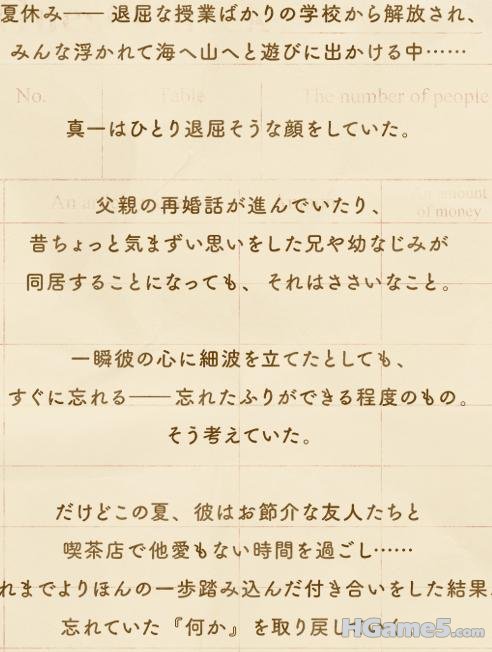 夏休み―― 退屈な授業ばかりの学校から解放され、
みんな浮かれて海へ山へと遊びに出かける中……
No. Table The number of people
真一はひとり退屈そうな顔をしていた。
父親の再婚話が進んでいたり、
An amount
of money
昔ちょっと気まずい思いをした兄や幼なじみが
同居することになっても、それはささいなこと。
一瞬彼の心に細波を立てたとしても、
すぐに忘れる――忘れたふりができる程度のもの。
そう考えていた。
だけどこの夏、彼はお節介な友人たちと
喫茶店で他愛もない時間を過ごし……
れまでよりほんの一歩踏み込んだ付き合いをした結果、
忘れていた『何か』を取り戻し
HGame5.com